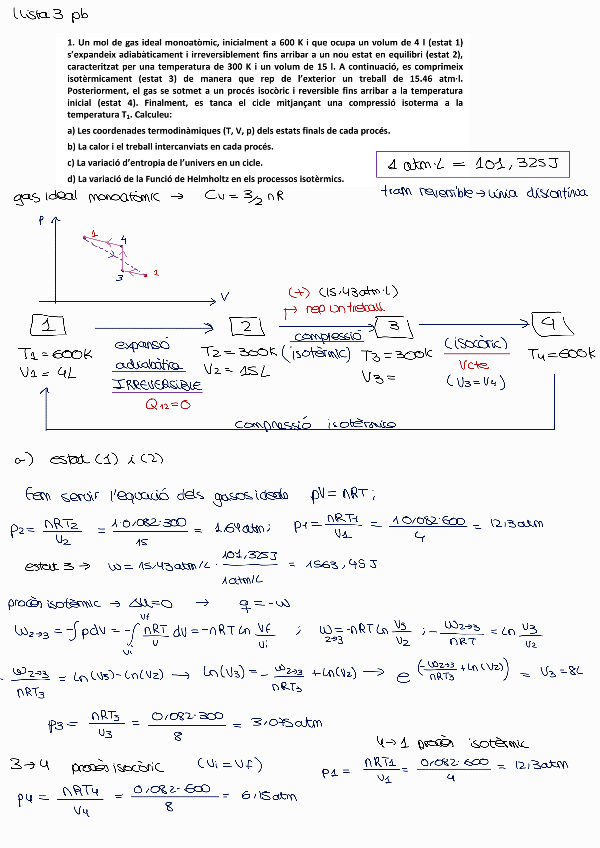 Llista 3 pb
1. Un mol de gas ideal monoatòmic, inicialment a 600 K i que ocupa un volum de 4 l (estat 1)
s'expandeix adiabàticament i irreversiblement fins arribar a un nou estat en equilibri (estat 2),
caracteritzat per una temperatura de 300 K i un volum de 15 l. A continuació, es comprimeix
isotèrmicament (estat 3) de manera que rep de l'exterior un treball de 15.46 atm·l.
Posteriorment, el gas se sotmet a un procés isocòric i reversible fins arribar a la temperatura
inicial (estat 4). Finalment, es tanca el cicle mitjançant una compressió isoterma a la
temperatura T₁. Calculeu:
a) Les coordenades termodinàmiques (T, V, p) dels estats finals de cada procés.
b) La calor i el treball intercanviats en cada procés.
c) La variació d'entropia de l'univers en un cicle.
d) La variació de la Funció de Helmholtz en els processos isotèrmics.
1 atm·L = 101,325 J
gas ideal monoatòmic → Cv = 3/2 nR
tram reversible → línia discontínua
P
1
4
3
2
V
(+) (15,43 atm·L)
rep un treball
1
2
compressió
3
(isocòric)
4
T1 = 600K
expansó
T2 = 300K
(isotèrmic)
T3 = 300K
Vcte
T4 = 600K
V1 = 4L
adiabàtica
V2 = 15L
V3 =
(V3 = V4)
IRREVERSIBLE
Q12 = 0
compressió isotèrmica
a) estat (1) i (2)
Fem servir l'equació dels gasos ideals pV = nRT;
p2 = nRT2/V2 = 1·0,082·300/15 = 1,64 atm; p1 = nRT1/V1 = 1·0,082·600/4 = 12,3 atm
estat 3 → w = 15,43 atm/L · 101,325J/1atm/L = 1563,45 J
procés isotèrmic → ΔU = 0 → q = -w
W2→3 = -∫pdV = -∫Vi Vf nRT/V dV = -nRT ln Vf/Vi ; W2→3 = -nRT ln V3/V2 ; - W2→3/nRT = ln V3/V2
- W2→3/nRT3 = ln(V3) - ln(V2) → ln(V3) = - W2→3/nRT3 + ln(V2) → e^(-W2→3/nRT3 + ln(V2)) = V3 = 8L
p3 = nRT3/V3 = 0,082·300/8 = 3,075 atm
4→1 procés isotèrmic
3→4 procés isocòric (Vi = Vf)
p1 = nRT1/V1 = 0,082·600/4 = 12,3 atm
p4 = nRT4/V4 = 0,082·600/8 = 6,15 atm